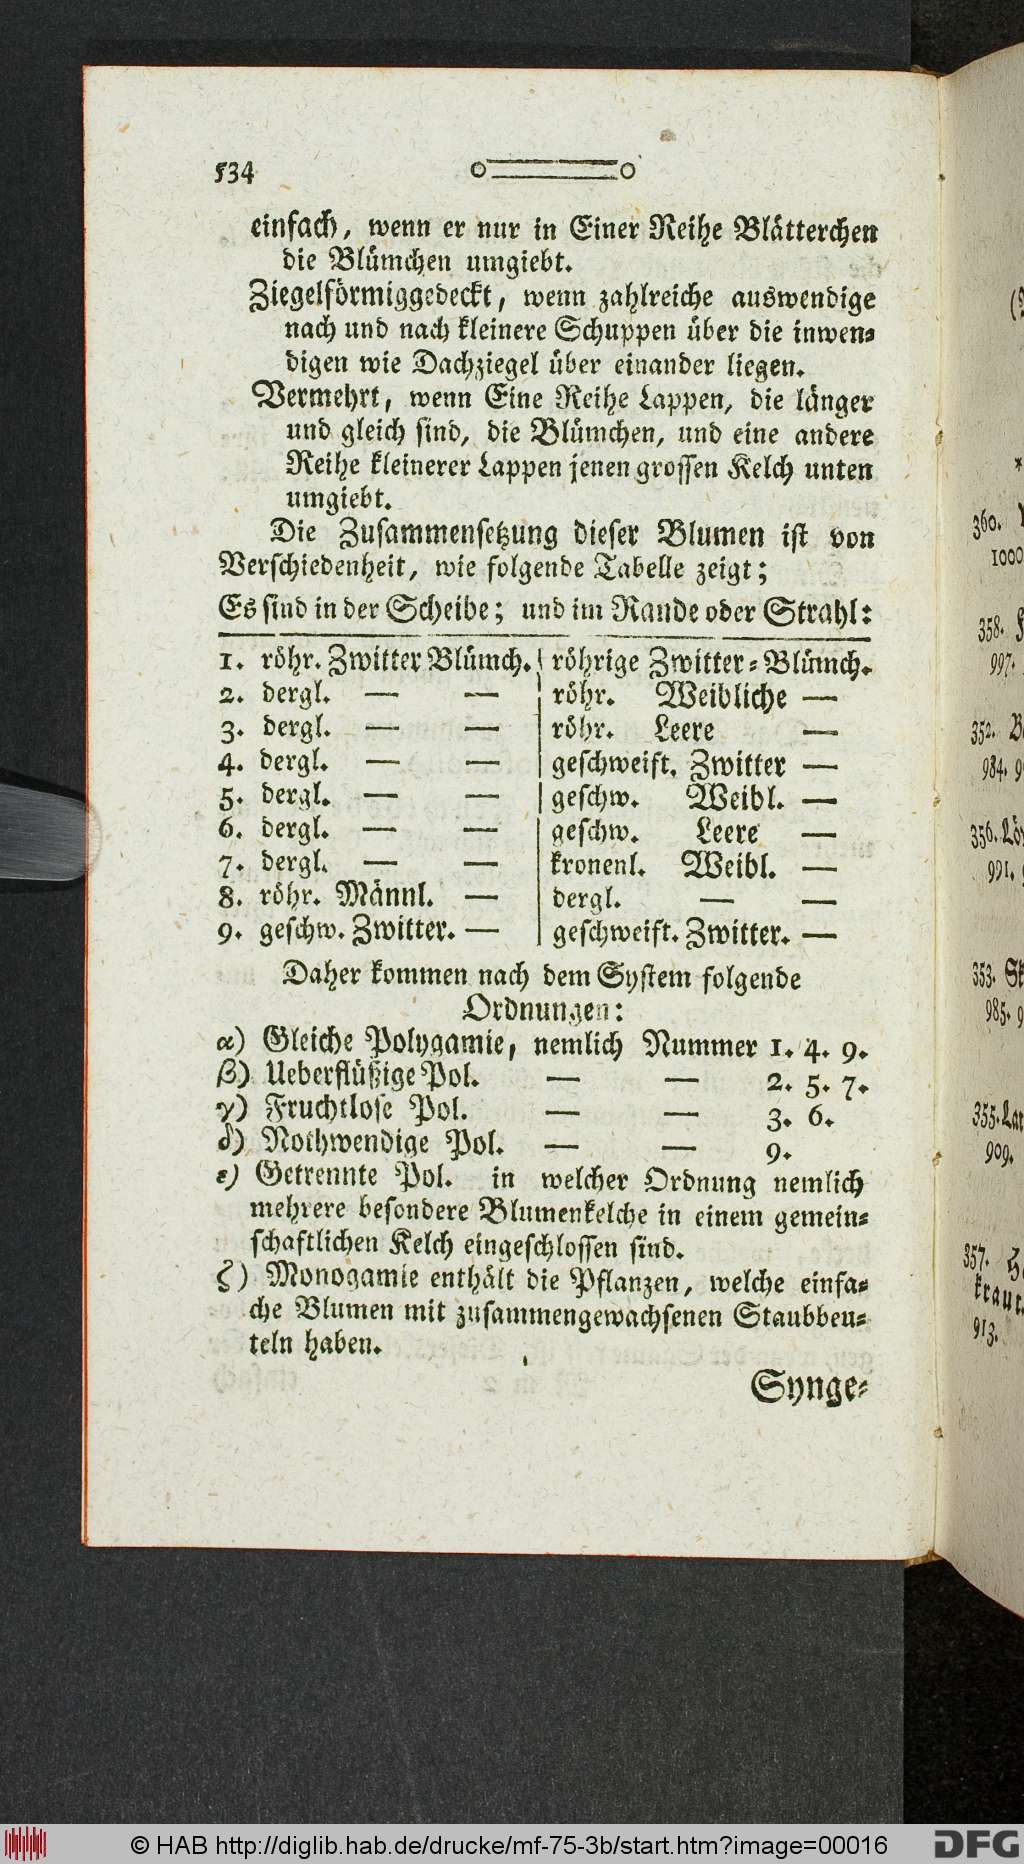 534
einfach, wenn er nur in Einer Reihe Blätterchen
die Blümchen umgiebt.
Ziegelförmiggedeckt, wenn zahlreiche auswendige
nach und nach kleinere Schuppen über die inwen-
digen wie Dachziegel über einander liegen.
Vermehrt, wenn Eine Reihe Lappen, die länger
und gleich sind, die Blümchen, und eine andere
Reihe kleinerer Lappen jenen grossen Kelch unten
umgiebt.
Die Zusammensetzung dieser Blumen ist von
Verschiedenheit, wie folgende Tabelle zeigt;
Es sind in der Scheibe; und im Rande oder Strahl:
1. röhr. Zwitter Blümch. röhrige Zwitter-Blümch.
2. dergl. — — röhr. Weibliche —
3. dergl. — — röhr. Leere —
4. dergl. — — geschweift. Zwitter —
5. dergl. — — geschw. Weibl. —
6. dergl. — — geschw. Leere —
7. dergl. — — kronenl. Weibl. —
8. röhr. Männl. — dergl. — —
9. geschw. Zwitter. — geschweift. Zwitter. —
Daher kommen nach dem System folgende
Ordnungen:
α) Gleiche Polygamie, nemlich Nummer 1. 4. 9.
β) Ueberflüßige Pol. — — 2. 5. 7.
γ) Fruchtlose Pol. — — 3. 6.
δ) Nothwendige Pol. — — 9.
ε) Getrennte Pol. in welcher Ordnung nemlich
mehrere besondere Blumenkelche in einem gemein-
schaftlichen Kelch eingeschlossen sind.
ζ) Monogamie enthält die Pflanzen, welche einfa-
che Blumen mit zusammengewachsenen Staubbeu-
teln haben.
Synge-
360.
1000
358.
997.
352.
984.
356.
991.
353.
985.
355.
909.
357.
913.
© HAB http://diglib.hab.de/drucke/mf-75-3b/start.htm?image=00016
DFG